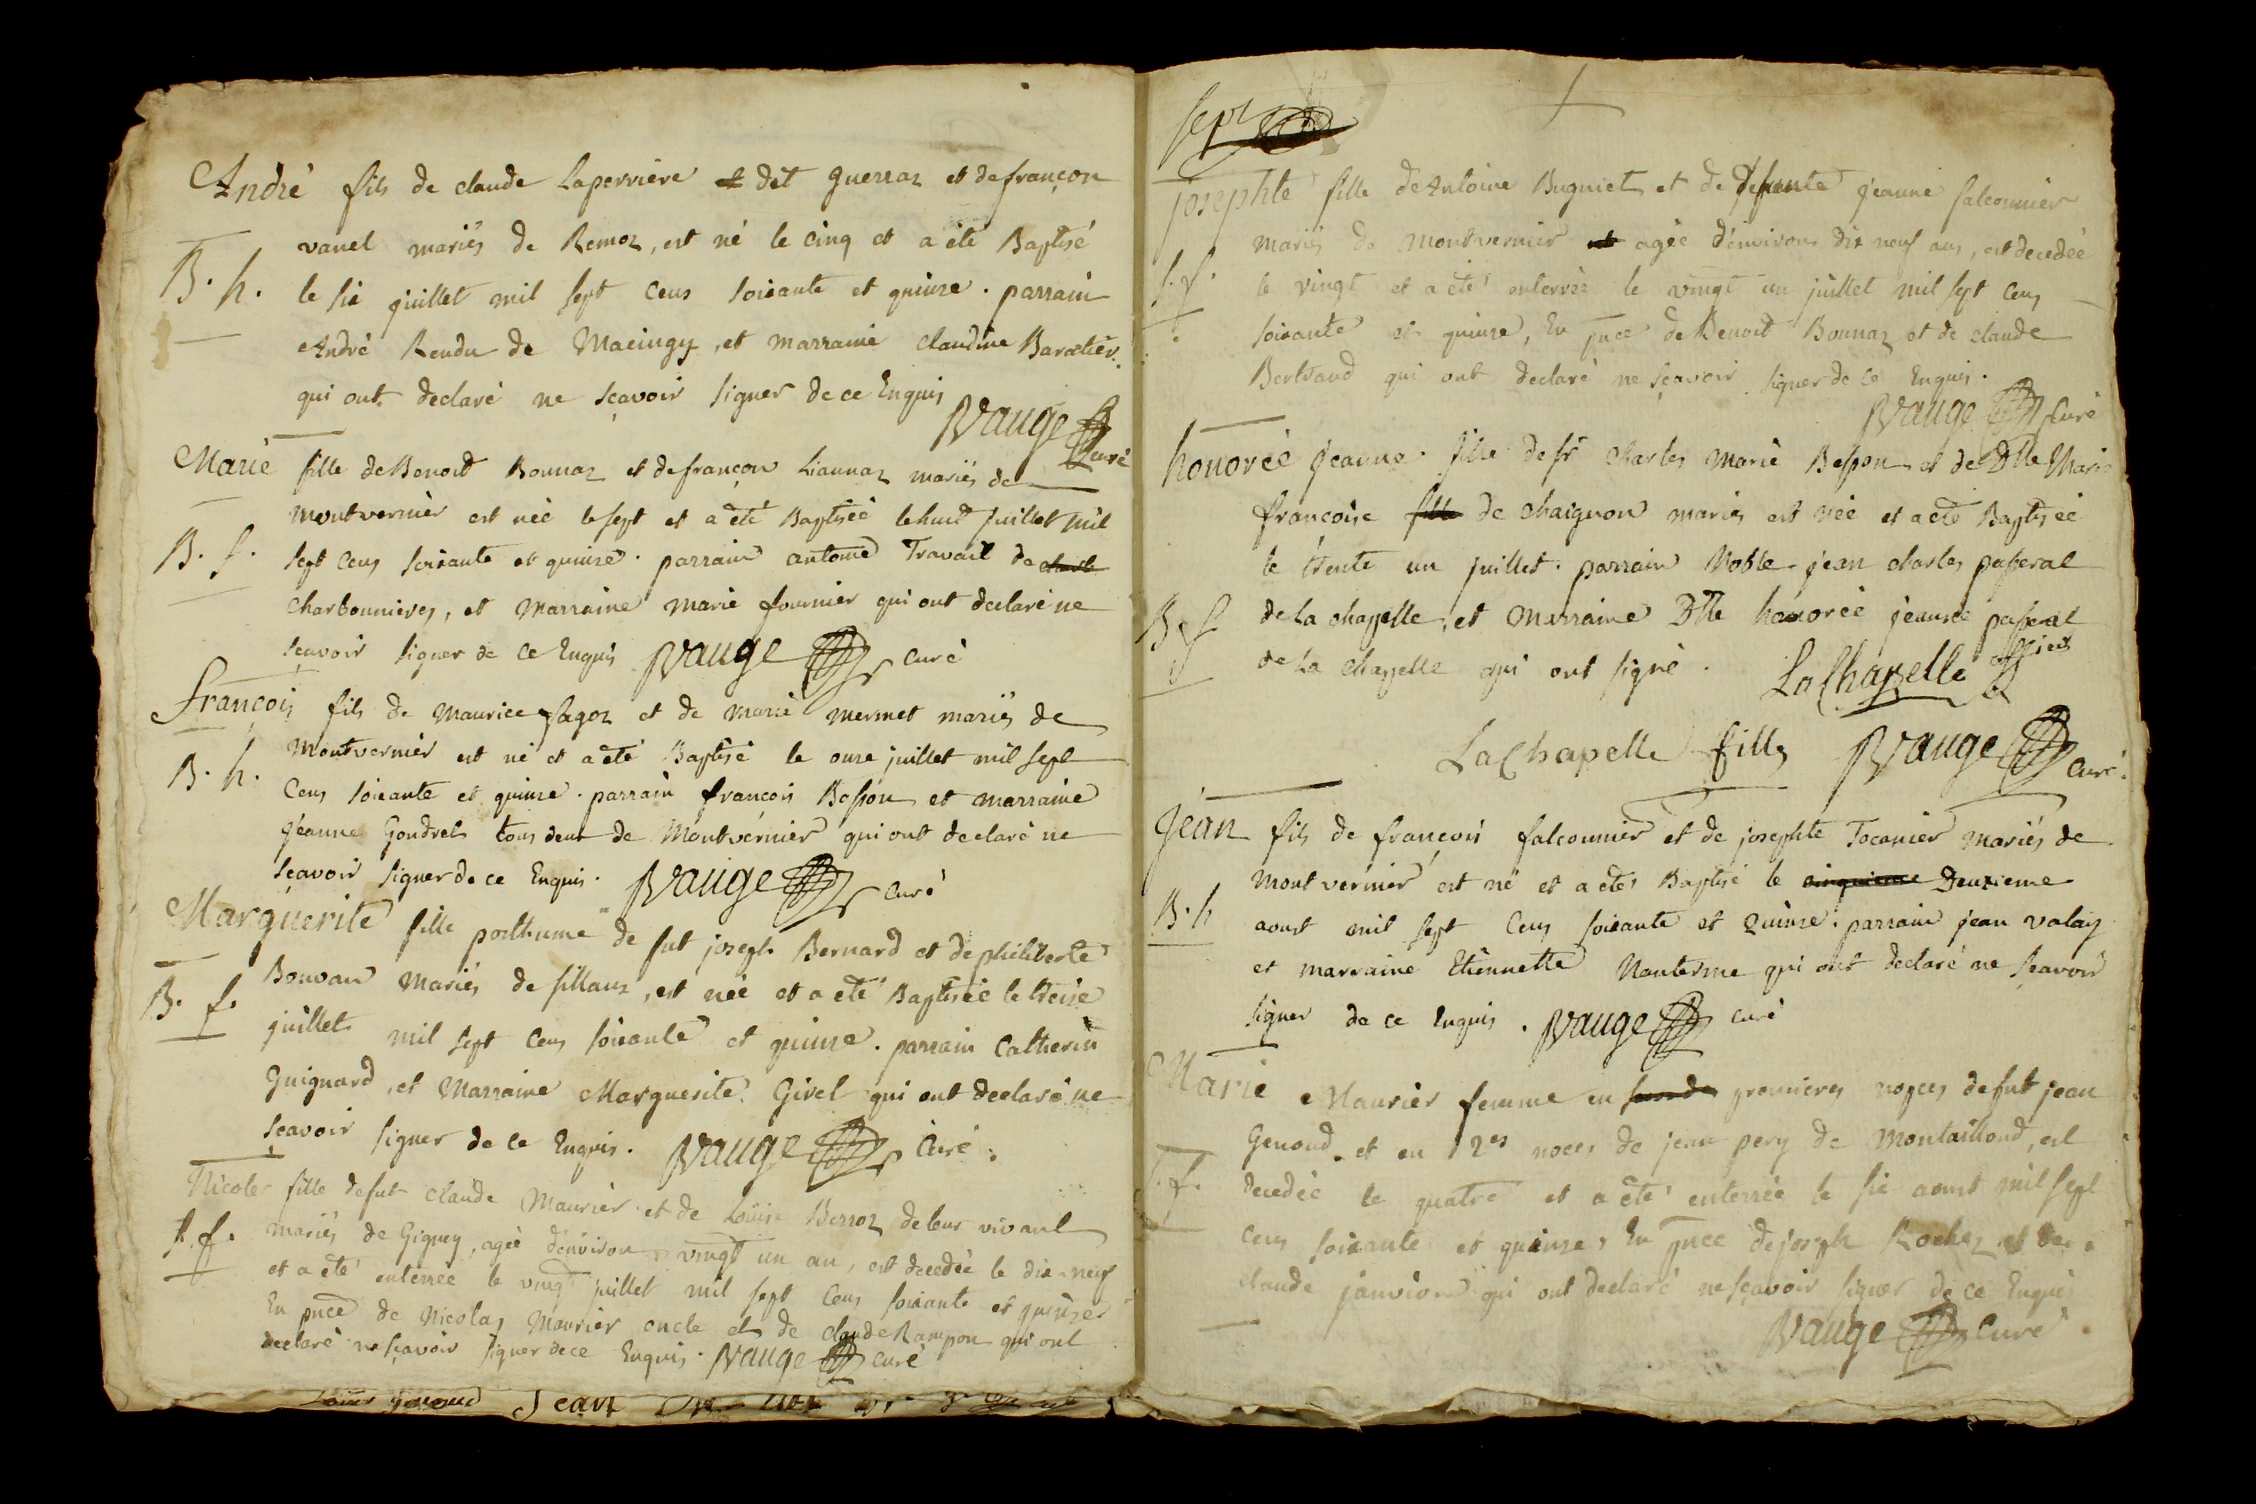 André fils de claude Laperriere dit guerraz et de françon
vanel mariés de Remoz, est né le cinq et a été Baptisé
B. h. le six juillet mil sept cens soixante et quinze. parrain
André Rendu de Macingy, et marraine claudine Baratier
qui ont declaré ne sçavoir signer de ce Enquis
Vauge Curé
Marie fille de Benoit Bonnaz et de françon Liannaz mariés de
montvernier est née le sept et a été Baptisée le huit juillet mil
B. f. sept cens soixante et quinze. parrain antoine Travail de
charbonnieres, et Marraine marie fournier qui ont declaré ne
sçavoir signer de ce Enquis Vauge curé
françois fils de maurice et de marie mermet mariés de
B. h. Montvernier est né et a été Baptisé le onze juillet mil sept
Cens soixante et quinze. parrain françois Besson et marraine
jeanne Gondret tous deux de Montvernier qui ont declaré ne
sçavoir signer de ce Enquis. Vauge curé
Marguerite fille posthume de fut joseph Bernard et de philiberte
B. f. Bouvard Mariés de sillans, est née et a été Baptisée le treise
juillet mil sept cens soixante et quinze. parrain Catherin
Guignard, et Marraine Marguerite Girel qui ont declaré ne
sçavoir signer de ce Enquis. Vauge Curé.
Nicole fille de fut claude Maurier et de Loüise Berroz de leur vivant
S. f. mariés de Gigney, agée d'environ vingt un an, est decedée le dix neuf
et a été enterrée le vingt juillet mil sept cens soixante et quinze
En pnce de Nicolas Maurier oncle et de claude Rampon qui ont
declaré ne sçavoir signer de ce Enquis. Vauge curé
Jean
Sept
josephte fille de Antoine Buguiet et de defunte jeanne falconnier
mariés de montvernier agée d'environs dix neuf ans, est decedée
S. f. le vingt et a été enterrée le vingt un juillet mil sept cens
soixante et quinze, En pnce de Benoit Bonnaz et de claude
Bertrand qui ont declaré ne sçavoir signer de ce Enquis.
Vauge Curé
honorée jeanne fille de sr charles marie Besson et de Dlle Marie
françoise fille de chaignon mariés est née et a été Baptisée
le trente un juillet. parrain Noble jean charles passerat
B f de la chappelle, et Marraine Dlle honorée jeanne passerat
de la chappelle qui ont signé. LaChapelle
LaChapelle fille Vauge Curé.
Jean fils de françois falconnier et de josephte Tocanier mariés de
montvernier est né et a été Baptisé le cinquieme Deuxieme
B. h aoust mil sept Cens soixante et quinze. parrain jean valay
et marraine Etiennette Nanterme qui ont declaré ne sçavoir
signer de ce Enquis. Vauge curé
Marie Maurier femme en premieres nopces de fut jean
Genoud. et en 2es noces de jean pery de montaillond, est
S. f. decedée le quatre et a été enterrée le six aoust mil sept
cens soixante et quinze, En pnce de joseph Rochez et de
claude janvion qui ont declaré ne sçavoir signer de ce Enquis
Vauge Curé.